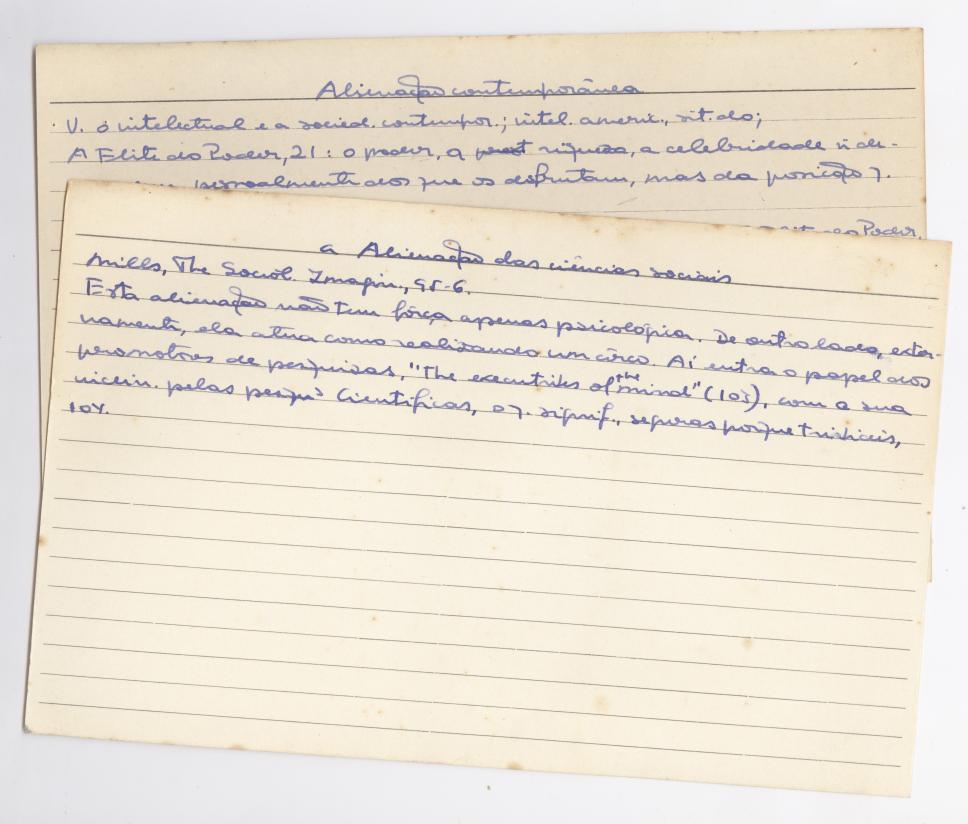 Alienação contemporânea
V. o intelectual e a socied. contempor.; intel. americ., sit. do;
A Elite do Poder, 21: o poder, a riqueza, a celebridade ñ de-
pessoalmente dos que os desfrutam, mas da posição q.
do Poder,
a Alienação das ciências sociais
Mills, The Sociol. Imagin., 95-6.
Esta alienação não tem fôrça apenas psicológica. De outro lado, exter-
namente, ela atua como realizando um cêrco. Aí entra o papel dos
promotores de pesquisas, "The executives of the mind" (103), com a sua
pelas pesqs científicas, o q. signif., seguras porque triviais,
104.